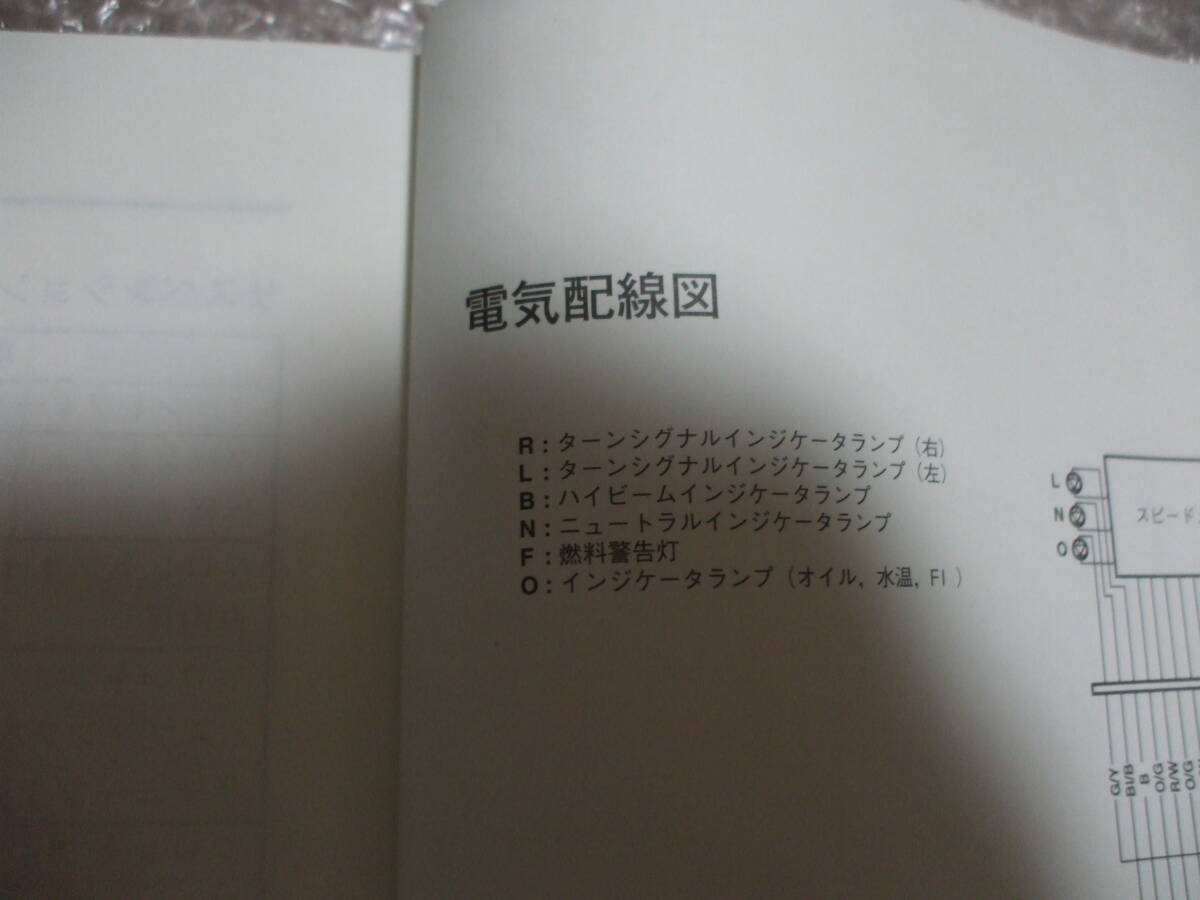 電気配線図
R：ターンシグナルインジケータランプ（右）
L：ターンシグナルインジケータランプ（左）
B：ハイビームインジケータランプ
N：ニュートラルインジケータランプ
F：燃料警告灯
O：インジケータランプ（オイル, 水温, FI ）
L
N
O
スピード
G/Y
Bl/B
B
O/G
R/W
O/G